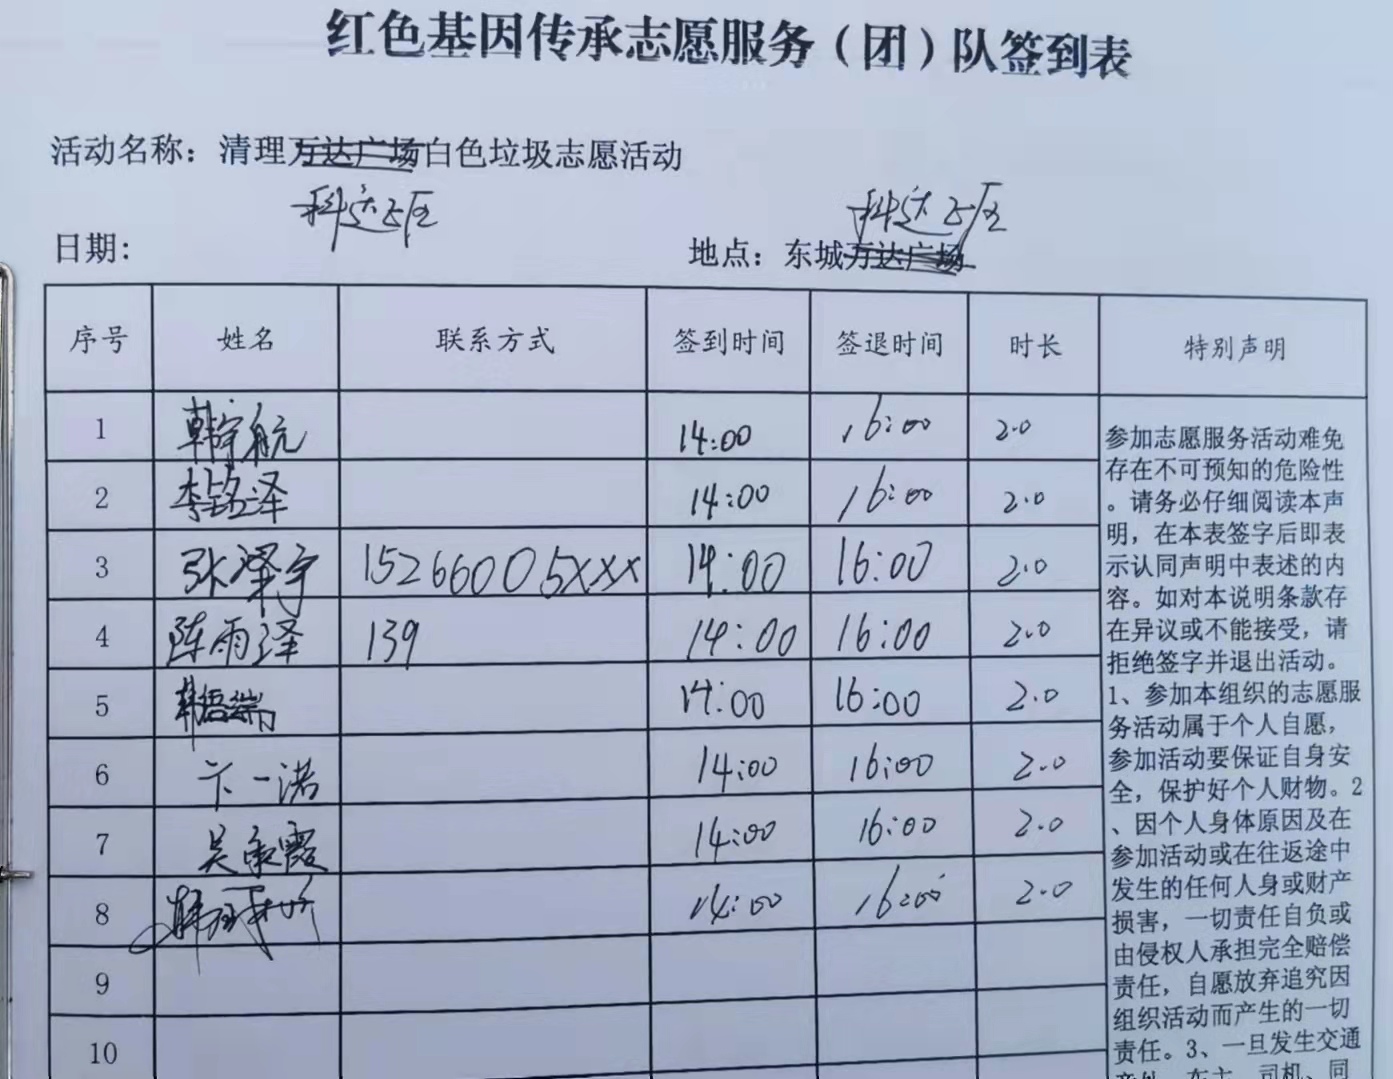 红色基因传承志愿服务（团）队签到表
活动名称：清理万达广场白色垃圾志愿活动
科达小区 科达小区
日期： 地点：东城万达广场
序号 姓名 联系方式 签到时间 签退时间 时长 特别声明
1 韩宇航 14:00 16:00 2.0
2 李铭泽 14:00 16:00 2.0
3 张泽宇 15266005xxx 14:00 16:00 2.0
4 陈雨泽 139 14:00 16:00 2.0
5 14:00 16:00 2.0
6 卞一诺 14:00 16:00 2.0
7 吴承霞 14:00 16:00 2.0
8 14:00 16:00 2.0
9
10
参加志愿服务活动难免
存在不可预知的危险性
。请务必仔细阅读本声
明，在本表签字后即表
示认同声明中表述的内
容。如对本说明条款存
在异议或不能接受，请
拒绝签字并退出活动。
1、参加本组织的志愿服
务活动属于个人自愿，
参加活动要保证自身安
全，保护好个人财物。2
、因个人身体原因及在
参加活动或在往返途中
发生的任何人身或财产
损害，一切责任自负或
由侵权人承担完全赔偿
责任，自愿放弃追究因
组织活动而产生的一切
责任。3、一旦发生交通
意外，车主、司机、同